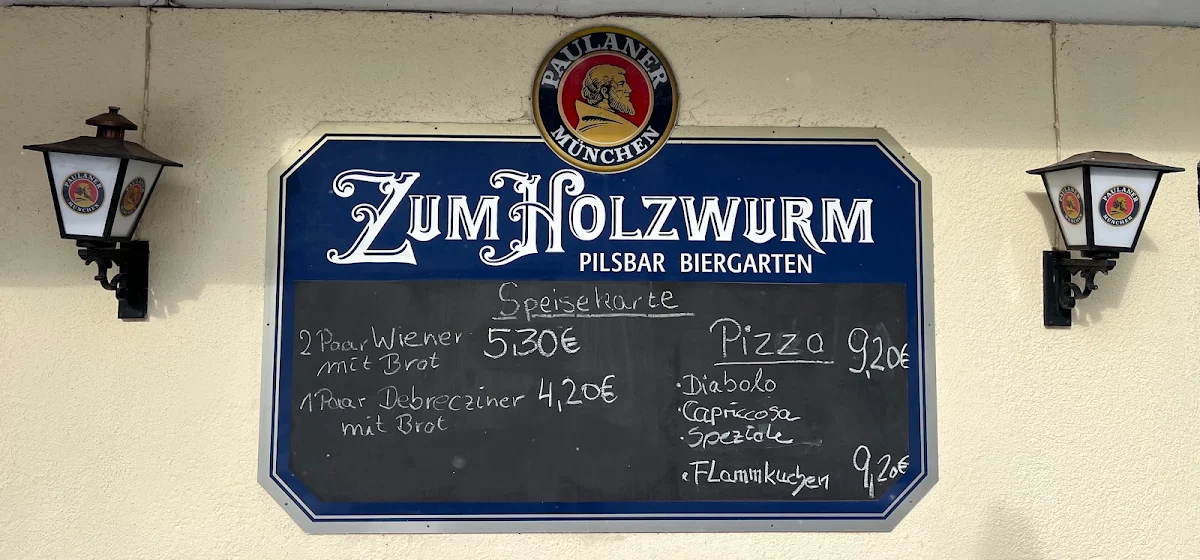 PAULANER
MÜNCHEN
ZUM HOLZWURM
PILSBAR BIERGARTEN
Speisekarte
2 Paar Wiener 5,30€
mit Brot
1 Paar Debrecziner 4,20€
mit Brot
Pizza 9,20€
• Diabolo
• Capriccosa
• Speziale
• Flammkuchen 9,20€
PAULANER
MÜNCHEN
PAULANER
MÜNCHEN